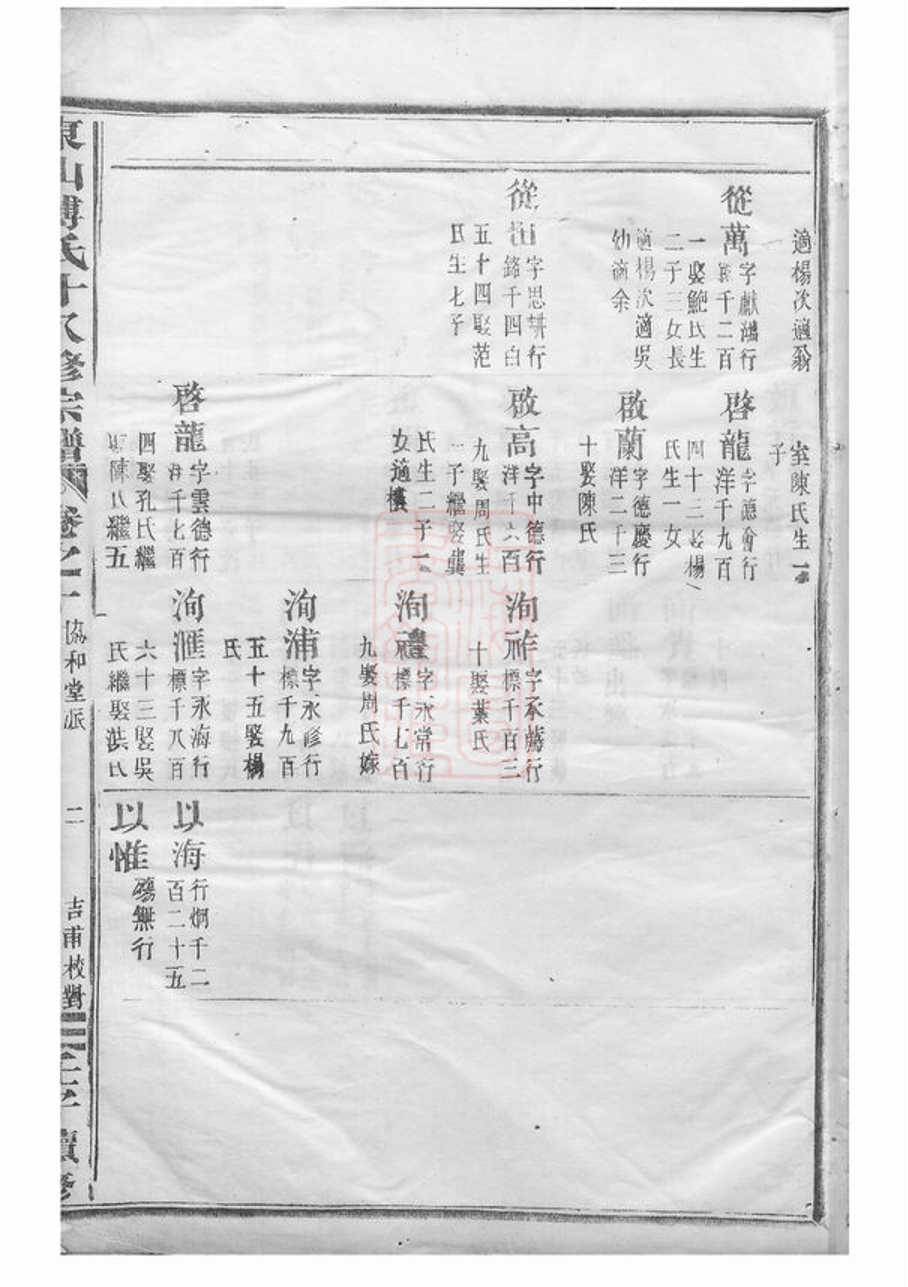 適楊次適翁
從萬
字獻鴻行
錦千二百
一娶鮑氏生
二子三女長
適楊次適吳
幼適余
從
字思耕行
錦千四百
五十四娶范
氏生七子
室陳氏生一
子
啓龍
字德會行
洋千九百
四十三娶楊
氏生一女
啟蘭
字德慶行
洋二千三
十娶陳氏
啟高
字中德行
洋千六百
九娶周氏生
一子繼娶龔
氏生二子一
女適樓
啓龍
字雲德行
洋千七百
四娶孔氏繼
娶陳氏繼五
洵祚
字承蔭行
標千百三
十娶葉氏
洵禮
字永常行
標千七百
九娶周氏嫁
洵浦
字永修行
標千九百
五十五娶楊
氏
洵滙
字永海行
標千八百
六十三娶吳
氏繼娶洪氏
以海
行炯千二
百二十五
以惟
殤無行
東山傅氏十八修宗譜
卷之一
協和堂派
二
吉甫校對
續修